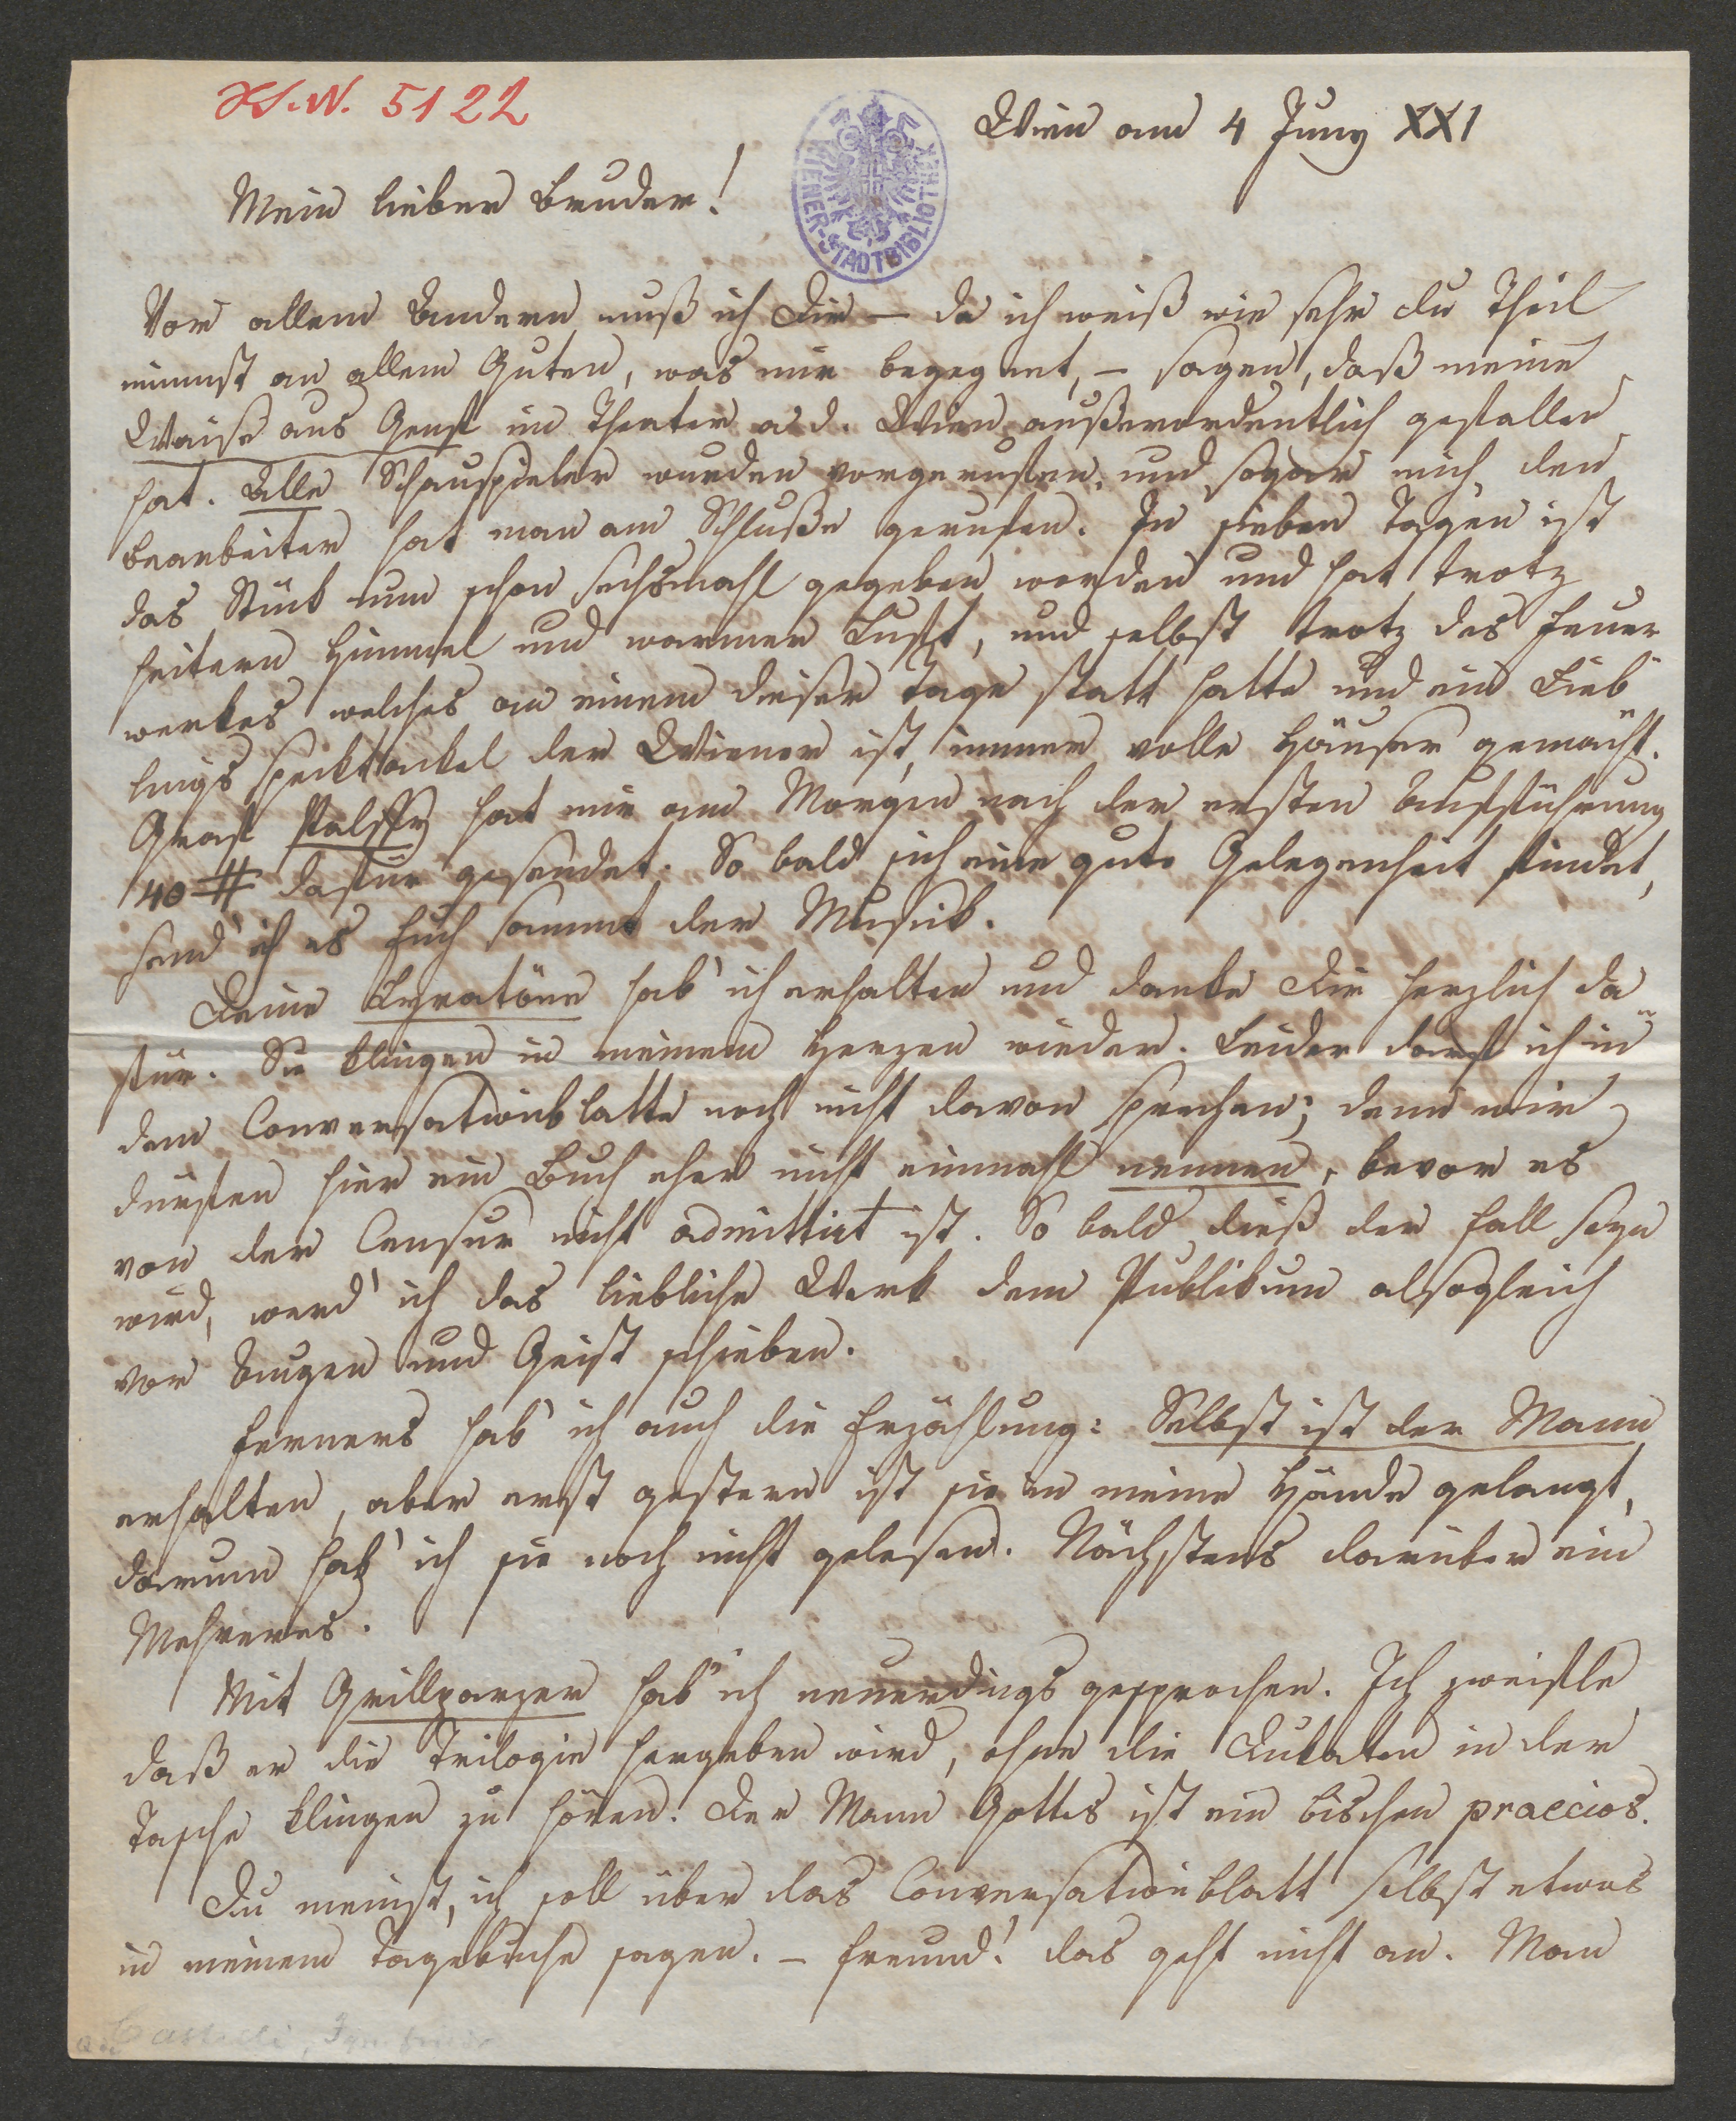 H.I.N. 5122
Wien am 4 Juny XXI
WIENER-STADTBIBLIOTHEK
Mein lieber Bruder!
Vor allem Andern muß ich Dir – da ich weiß wie sehr du Theil
nimmst an allem Guten, was mir begegnet, – sagen, daß meine
Waise aus Genf im Theater a. d. Wien außerordentlich gefallen
hat. Alle Schauspieler wurden vorgerufen, und sogar mich, den
Bearbeiter hat man am Schluße gerufen. In sieben Tagen ist
das Stück nun schon sechsmahl gegeben worden und hat trotz
heitern Himmel und warmer Luft, und selbst trotz des Feuer
werkes welches an einem dieser Tage statt hatte und ein Lieb¨
lings Specktackel der Wiener ist, immer volle Häuser gemacht.
Graf Palffy hat mir am Morgen nach der ersten Aufführung
40 # dafür gesendet. So bald sich eine gute Gelegenheit findet,
send' ich es Euch sammt der Musik.
Deine Lyratöne hab' ich erhalten und danke Dir herzlich da¨
für. Sie klingen in meinem Herzen wieder. Leider darf ich in
dem Conversationsblatte noch nicht davon sprechen; denn wir
dürfen hier ein Buch eher nicht einmahl nennen, bevor es
von der Censur nicht admittirt ist. So bald dieß der Fall seyn
wird, werd' ich das liebliche Werk dem Publikum alsogleich
vor Augen und Geist schieben.
Ferners hab' ich auch die Erzählung: Selbst ist der Mann
erhalten, aber erst gestern ist sie in meine Hände gelangt,
darum hab' ich sie noch nicht gelesen. Nächstens darüber ein
Mehreres.
Mit Grillparzer hab' ich neuerdings gesprochen. Ich zweifle
daß er die Trilogie hergeben wird, ohne die Dukaten in der
Tasche klingen zu hören. Der Mann Gottes ist ein bischen praecios.
Du meinst, ich soll über das Conversationsblatt selbst etwas
in meinem Tagebuche sagen. – Freund! das geht nicht an. Man
Castelli,